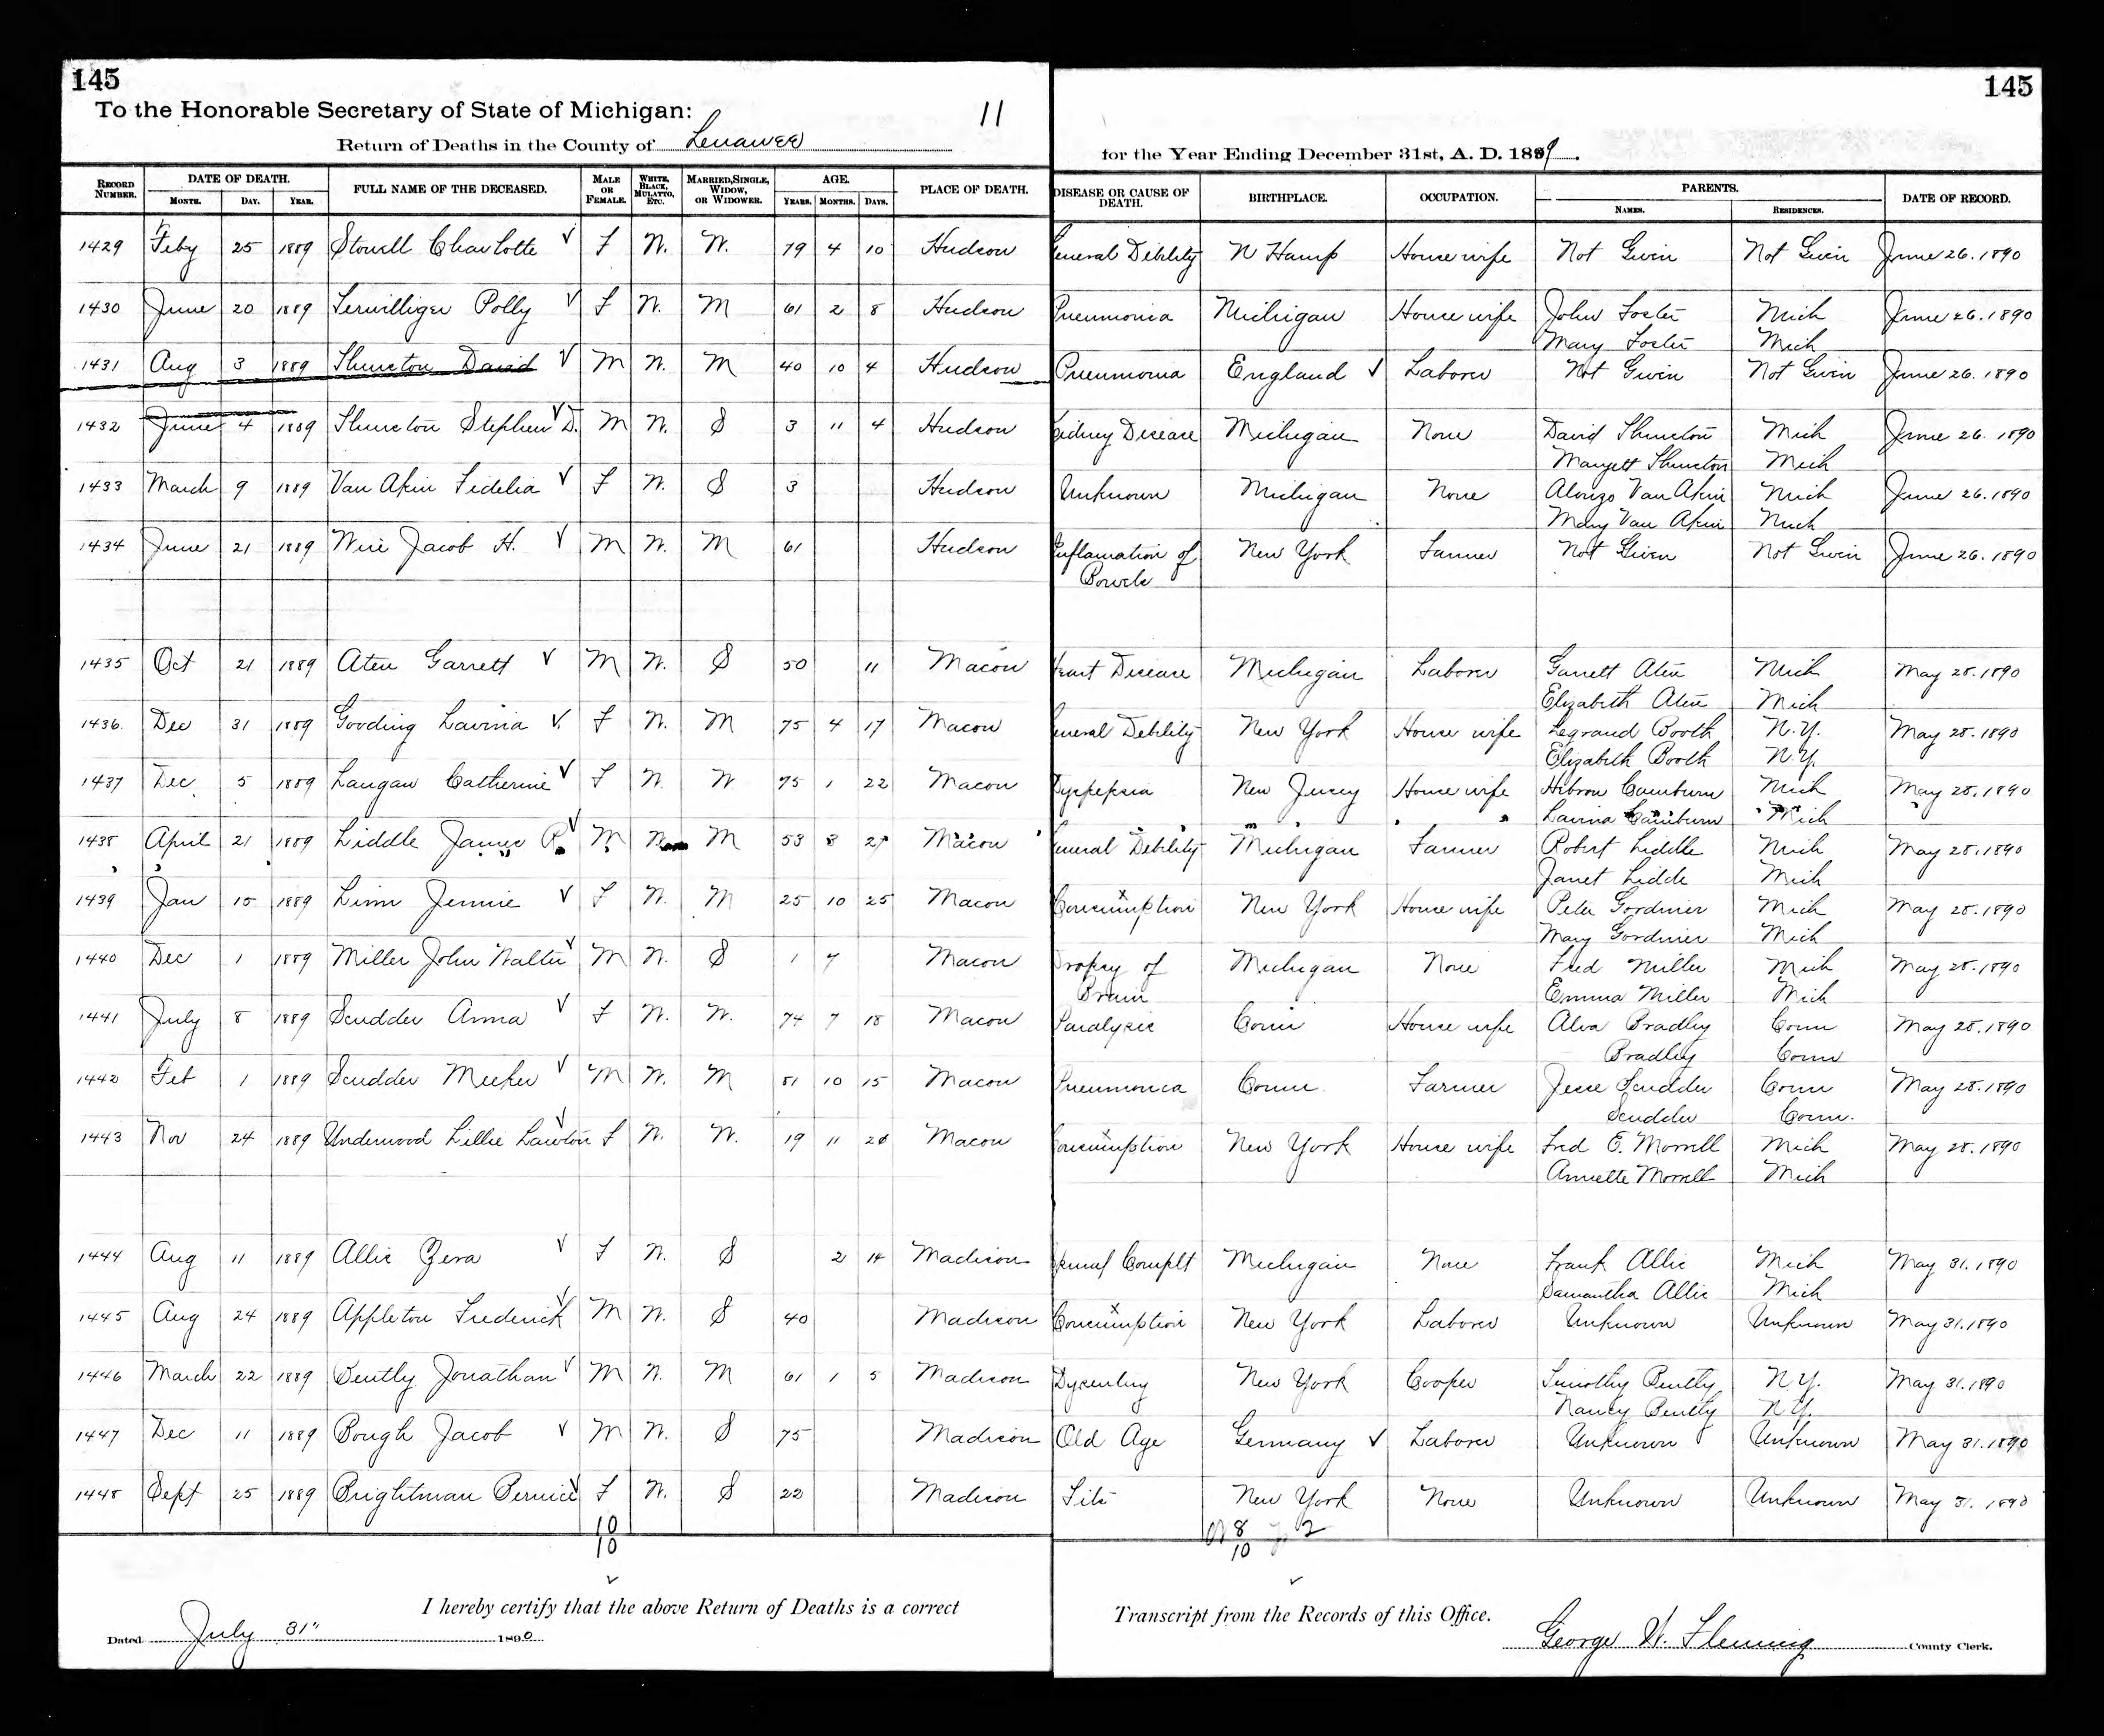 145
145
To the Honorable Secretary of State of Michigan:
11
Return of Deaths in the County of Lenawee
for the Year Ending December 31st, A. D. 1889.
RECORD NUMBER. DATE OF DEATH. MONTH. DAY. YEAR. FULL NAME OF THE DECEASED. MALE OR FEMALE. WHITE, BLACK, MULATTO, ETC. MARRIED, SINGLE, WIDOW, OR WIDOWER. AGE. YEARS. MONTHS. DAYS. PLACE OF DEATH. DISEASE OR CAUSE OF DEATH. BIRTHPLACE. OCCUPATION. PARENTS. NAMES. RESIDENCES. DATE OF RECORD.
1429 Feby 25 1889 Stowell Charlotte F W. W. 79 4 10 Hudson General Debility N Hamp House wife Not Given Not Given June 26. 1890
1430 June 20 1889 Terwilliger Polly F W. M 61 2 8 Hudson Pneumonia Michigan House wife John Foster Mich June 26. 1890
Mary Foster Mich
1431 Aug 3 1889 Thurston David M W. M 40 10 4 Hudson Pneumonia England Laborer Not Given Not Given June 26. 1890
1432 June 4 1889 Thurston Stephen D. M W. S 3 11 4 Hudson Kidney Disease Michigan None David Thurston Mich June 26. 1890
Margett Thurston Mich
1433 March 9 1889 Van Akin Fidelia F W. S 3 Hudson Unknown Michigan None Alonzo Van Akin Mich June 26. 1890
Mary Van Akin Mich
1434 June 21 1889 Jacob H. M W. M 61 Hudson Inflamation of New York Farmer Not Given Not Given June 26. 1890
Bowels
1435 Oct 21 1889 Aten Garrett M W. S 50 11 Macon Heart Disease Michigan Laborer Garrett Aten Mich May 28. 1890
Elizabeth Aten Mich
1436. Dec 31 1889 Gooding Lavina F W. M 75 4 17 Macon General Debility New York House wife Legrand Booth N.Y. May 28. 1890
Elizabeth Booth N.Y.
1437 Dec 5 1889 Langan Catherine F W. W 75 1 22 Macon Dyspepsia New Jersey House wife Camburn Mich May 28. 1890
Lavina Camburn Mich
1438 April 21 1889 Liddle James R. M W M 53 8 Macon General Debility Michigan Farmer Robert Liddle Mich May 28. 1890
Janet Liddle Mich
1439 Jan 15 1889 Linn Jennie F W. M 25 10 25 Macon Consumption New York House wife Peter Gordinier Mich May 28. 1890
Mary Gordinier Mich
1440 Dec 1 1889 Miller John Walter M W. S 1 7 Macon Dropsy of Michigan None Fred Miller Mich May 28. 1890
Brain Emma Miller Mich
1441 July 8 1889 Scudder Anna F W. W. 74 7 18 Macon Paralysis Conn House wife Alva Bradley Conn May 28. 1890
Bradley Conn
1442 Feb 1 1889 Scudder Meeker M W. M 81 10 15 Macon Pneumonia Conn Farmer Jesse Scudder Conn May 28. 1890
Scudder Conn.
1443 Nov 24 1889 Underwood Lillie Lawton F W. W. 19 11 Macon Consumption New York House wife Fred E. Morrell Mich May 28. 1890
Annette Morrell Mich
1444 Aug 11 1889 Allie Zera F W. S 2 14 Madison Complt Michigan None Frank Allie Mich May 31. 1890
Samantha Allie Mich
1445 Aug 24 1889 Appleton Frederick M W. S 40 Madison Consumption New York Laborer Unknown Unknown May 31. 1890
1446 March 22 1889 Bently Jonathan M W. M 61 1 5 Madison Dysentery New York Cooper Timothy Bently N.Y. May 31. 1890
Nancy Bently N.Y.
1447 Dec 11 1889 Bough Jacob M W. S 75 Madison Old Age Germany Laborer Unknown Unknown May 31. 1890
1448 Sept 25 1889 Brightman Bernice F W. S 22 Madison Fits New York None Unknown Unknown May 31. 1890
10
10
8 2
10
I hereby certify that the above Return of Deaths is a correct Transcript from the Records of this Office.
Dated July 31" 1890 George W. Fleming County Clerk.